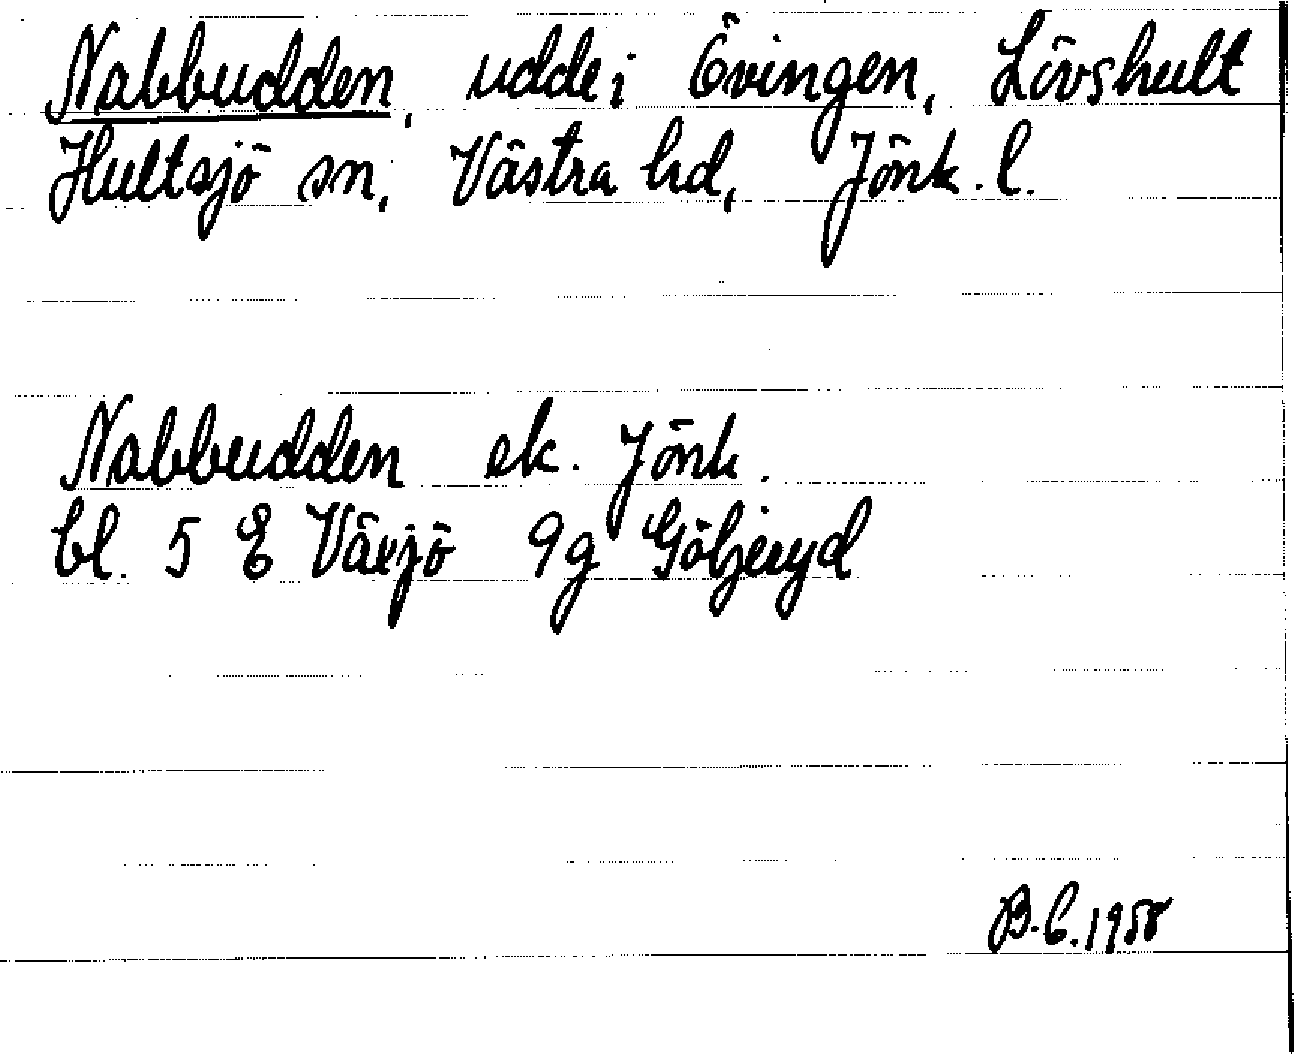 Nabbudden, udde i Övingen, Lövshult
Hultsjö sn, Västra hd, Jönk. l.
Nabbudden ek. Jönk.
bl. 5 E Växjö 9g Göljeryd
B.C.